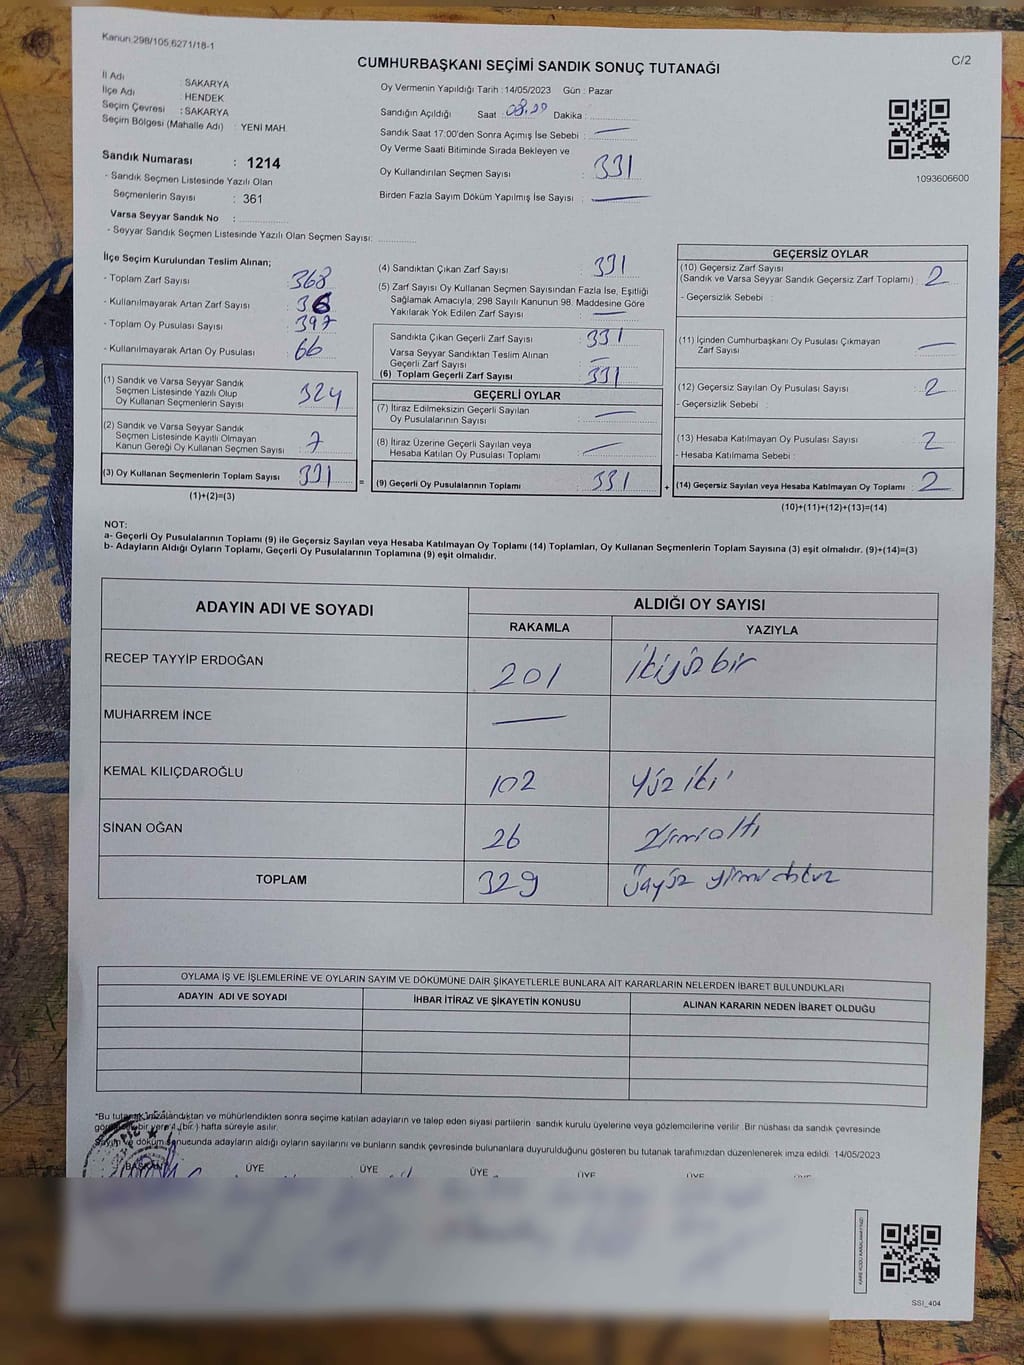 Kanun 298/105,6271/18-1
C/2
CUMHURBAŞKANI SEÇİMİ SANDIK SONUÇ TUTANAĞI
İl Adı : SAKARYA
İlçe Adı : HENDEK
Seçim Çevresi : SAKARYA
Seçim Bölgesi (Mahalle Adı) : YENİ MAH.
Oy Vermenin Yapıldığı Tarih : 14/05/2023 Gün : Pazar
Sandığın Açıldığı Saat : Dakika :
Sandık Saat 17:00'den Sonra Açımış İse Sebebi :
Oy Verme Saati Bitiminde Sırada Bekleyen ve
Oy Kullandırılan Seçmen Sayısı : 331
Birden Fazla Sayım Döküm Yapılmış İse Sayısı :
1093606600
Sandık Numarası : 1214
- Sandık Seçmen Listesinde Yazılı Olan
Seçmenlerin Sayısı : 361
Varsa Seyyar Sandık No :
- Seyyar Sandık Seçmen Listesinde Yazılı Olan Seçmen Sayısı:
İlçe Seçim Kurulundan Teslim Alınan;
- Toplam Zarf Sayısı : 368
- Kullanılmayarak Artan Zarf Sayısı : 36
- Toplam Oy Pusulası Sayısı : 397
- Kullanılmayarak Artan Oy Pusulası : 66
(1) Sandık ve Varsa Seyyar Sandık
Seçmen Listesinde Yazılı Olup
Oy Kullanan Seçmenlerin Sayısı : 324
(2) Sandık ve Varsa Seyyar Sandık
Seçmen Listesinde Kayıtlı Olmayan
Kanun Gereği Oy Kullanan Seçmen Sayısı : 7
(3) Oy Kullanan Seçmenlerin Toplam Sayısı : 331
(1)+(2)=(3)
=
(4) Sandıktan Çıkan Zarf Sayısı : 331
(5) Zarf Sayısı Oy Kullanan Seçmen Sayısından Fazla İse, Eşitliği
Sağlamak Amacıyla, 298 Sayılı Kanunun 98. Maddesine Göre
Yakılarak Yok Edilen Zarf Sayısı :
Sandıkta Çıkan Geçerli Zarf Sayısı : 331
Varsa Seyyar Sandıktan Teslim Alınan
Geçerli Zarf Sayısı :
(6) Toplam Geçerli Zarf Sayısı : 331
GEÇERLİ OYLAR
(7) İtiraz Edilmeksizin Geçerli Sayılan
Oy Pusulalarının Sayısı :
(8) İtiraz Üzerine Geçerli Sayılan veya
Hesaba Katılan Oy Pusulası Toplamı :
(9) Geçerli Oy Pusulalarının Toplamı : 331
+
GEÇERSİZ OYLAR
(10) Geçersiz Zarf Sayısı
(Sandık ve Varsa Seyyar Sandık Geçersiz Zarf Toplamı) : 2
- Geçersizlik Sebebi :
(11) İçinden Cumhurbaşkanı Oy Pusulası Çıkmayan
Zarf Sayısı :
(12) Geçersiz Sayılan Oy Pusulası Sayısı : 2
- Geçersizlik Sebebi :
(13) Hesaba Katılmayan Oy Pusulası Sayısı : 2
- Hesaba Katılmama Sebebi :
(14) Geçersiz Sayılan veya Hesaba Katılmayan Oy Toplamı : 2
(10)+(11)+(12)+(13)=(14)
NOT:
a- Geçerli Oy Pusulalarının Toplamı (9) ile Geçersiz Sayılan veya Hesaba Katılmayan Oy Toplamı (14) Toplamları, Oy Kullanan Seçmenlerin Toplam Sayısına (3) eşit olmalıdır. (9)+(14)=(3)
b- Adayların Aldığı Oyların Toplamı, Geçerli Oy Pusulalarının Toplamına (9) eşit olmalıdır.
ADAYIN ADI VE SOYADI ALDIĞI OY SAYISI
RAKAMLA YAZIYLA
RECEP TAYYİP ERDOĞAN 201 ikiyüzbir
MUHARREM İNCE
KEMAL KILIÇDAROĞLU 102 Yüz iki
SİNAN OĞAN 26 Yirmialtı
TOPLAM 329 üçyüz yirmi dokuz
OYLAMA İŞ VE İŞLEMLERİNE VE OYLARIN SAYIM VE DÖKÜMÜNE DAİR ŞİKAYETLERLE BUNLARA AİT KARARLARIN NELERDEN İBARET BULUNDUKLARI
ADAYIN ADI VE SOYADI İHBAR İTİRAZ VE ŞİKAYETİN KONUSU ALINAN KARARIN NEDEN İBARET OLDUĞU
"Bu tutanak imzalandıktan ve mühürlendikten sonra seçime katılan adayların ve talep eden siyasi partilerin sandık kurulu üyelerine veya gözlemcilerine verilir. Bir nüshası da sandık çevresinde
bir yere 1 (bir) hafta süreyle asılır.
Sayım ve döküm sonucunda adayların aldığı oyların sayılarını ve bunların sandık çevresinde bulunanlara duyurulduğunu gösteren bu tutanak tarafımızdan düzenlenerek imza edildi. 14/05/2023
BAŞKAN ÜYE ÜYE ÜYE ÜYE ÜYE ÜYE
SSI_404